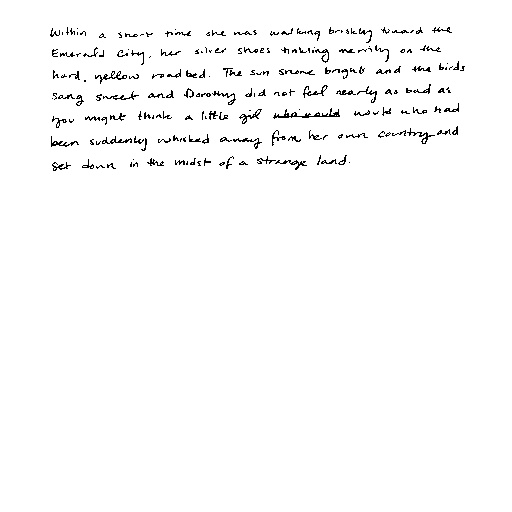 Within a short time she was walking briskly toward the
Emerald City, her silver shoes tinkling merrily on the
hard, yellow roadbed. The sun shone bright and the birds
sang sweet and Dorothy did not feel nearly as bad as
you might think a little girl who would would who had
been suddenly whisked away from her own country and
set down in the midst of a strange land.